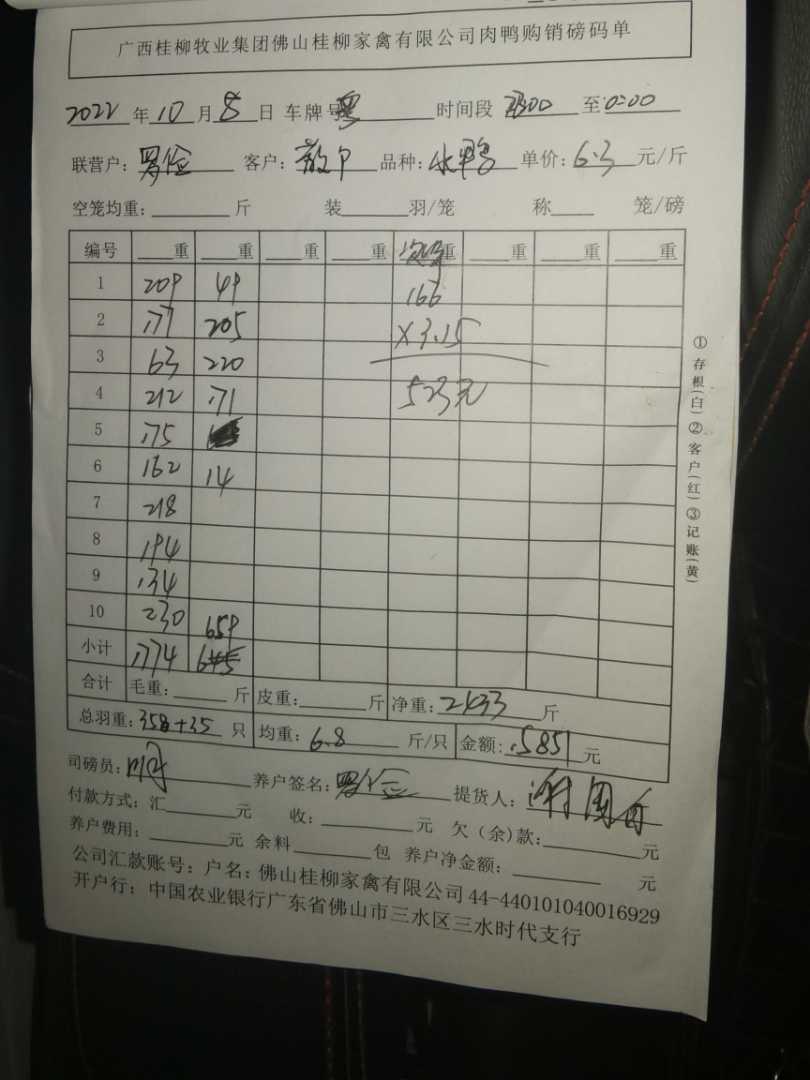 广西桂柳牧业集团佛山桂柳家禽有限公司肉鸭购销磅码单
2022 年 10 月 8 日 车牌号 粤 时间段 至 0:00
联营户: 罗俭 客户: 散户 品种: 水鸭 单价: 6.3 元/斤
空笼均重: 斤 装 羽/笼 称 笼/磅
编号 重 重 重 重 重 重 重 重
1 209 49 166
2 177 205 ×3.15
3 63 220
4 212 171 523元
5 175
6 162 14
7 218
8 194
9 134
10 230 659
小计 1774
合计 毛重: 斤 皮重: 斤 净重: 2433 斤
总羽重: 358+35 只 均重: 6.8 斤/只 金额: 元
司磅员: 养户签名: 罗俭 提货人: 谢
付款方式: 汇 元 收: 元 欠(余)款: 元
养户费用: 元 余料 包 养户净金额: 元
公司汇款账号: 户名: 佛山桂柳家禽有限公司 44-440101040016929
开户行: 中国农业银行广东省佛山市三水区三水时代支行
①存根(白)②客户(红)③记账(黄)